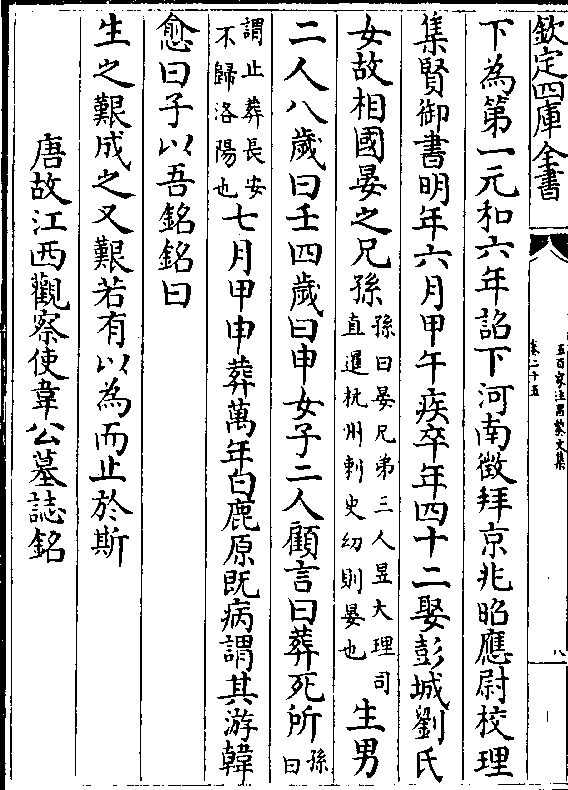 欽定四庫全書
五百家注昌黎文集
卷二十五
八
下為第一元和六年詔下河南徵拜京兆昭應尉校理
集賢御書明年六月甲午疾卒年四十二娶彭城劉氏
女故相國晏之兄孫
孫曰晏兄弟三人昱大理司
直暹杭州刺史㓜則晏也
生男
二人八歲曰壬四歲曰申女子二人顧言曰葬死所
孫
曰
謂止葬長安
不歸洛陽也
七月甲申葬萬年白鹿原既病謂其游韓
愈曰子以吾銘銘曰
生之艱成之又艱若有以為而止於斯
唐故江西觀察使韋公墓誌銘